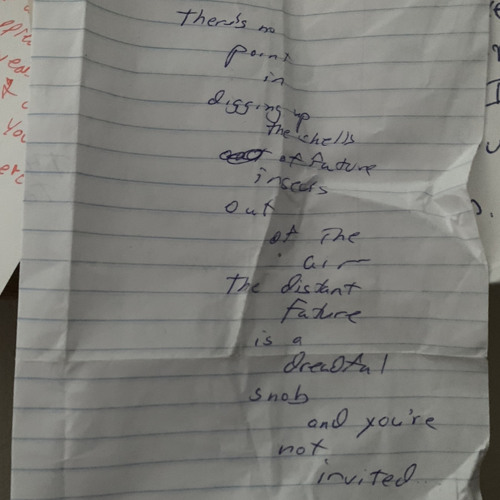 there's no
point
in
digging up
the shells
of future
insects
out
of the
air
the distant
future
is a
dreadful
snob
and you're
not
invited